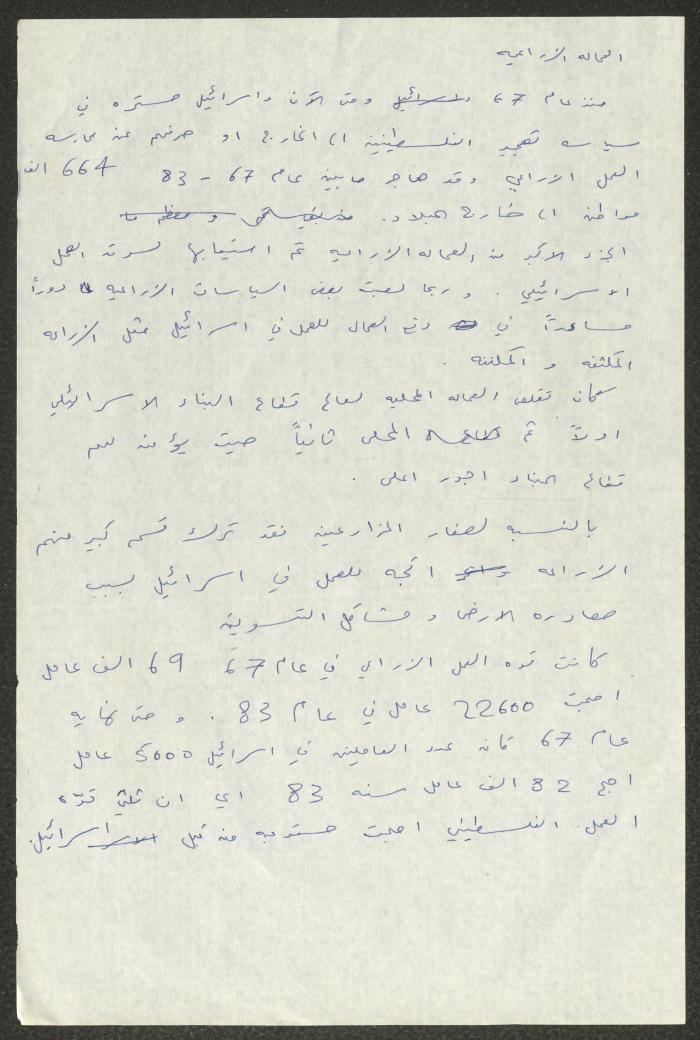 العماله الزراعيه
منذ عام 67 واسرائيل وحتى الآن واسرائيل مستمره في
سياسه تهجير الفلسطينيين الى الخارج او صرفهم عن ممارسه
العمل الزراعي وقد هاجر ما بين عام 67 - 83 664 الف
مواطن الى خارج البلاد. ومعظم ما
الجزء الاكبر من العماله الزراعيه تم استيعابها لسوق العمل
الاسرائيلي . وربما لعبت بعض السياسات الزراعيه دوراً
مساعداً في دفع العمال للعمل في اسرائيل مثل الزراعه
المكثفه و المكننه .
كان تقلص العماله المحليه لصالح قطاع البناء الاسرائيلي
اولاً ثم المحلي ثانياً حيث يؤمن لهم
قطاع البناء اجور اعلى .
بالنسبه لصغار المزارعين فقد ترك قسم كبير منهم
الزراعه اتجه للعمل في اسرائيل بسبب
مصادره الارض و مشاكل التسويق
كانت قوه العمل الزراعي في عام 67 69 الف عامل
اصبحت 22600 عامل في عام 83 . و حتى نهايه
عام 67 كان عدد العاملين في اسرائيل 5000 عامل
اصبح 82 الف عامل سنه 83 اي ان ثلثي قوه
العمل الفلسطيني اصبحت مستوعبه من قبل اسرائيل.